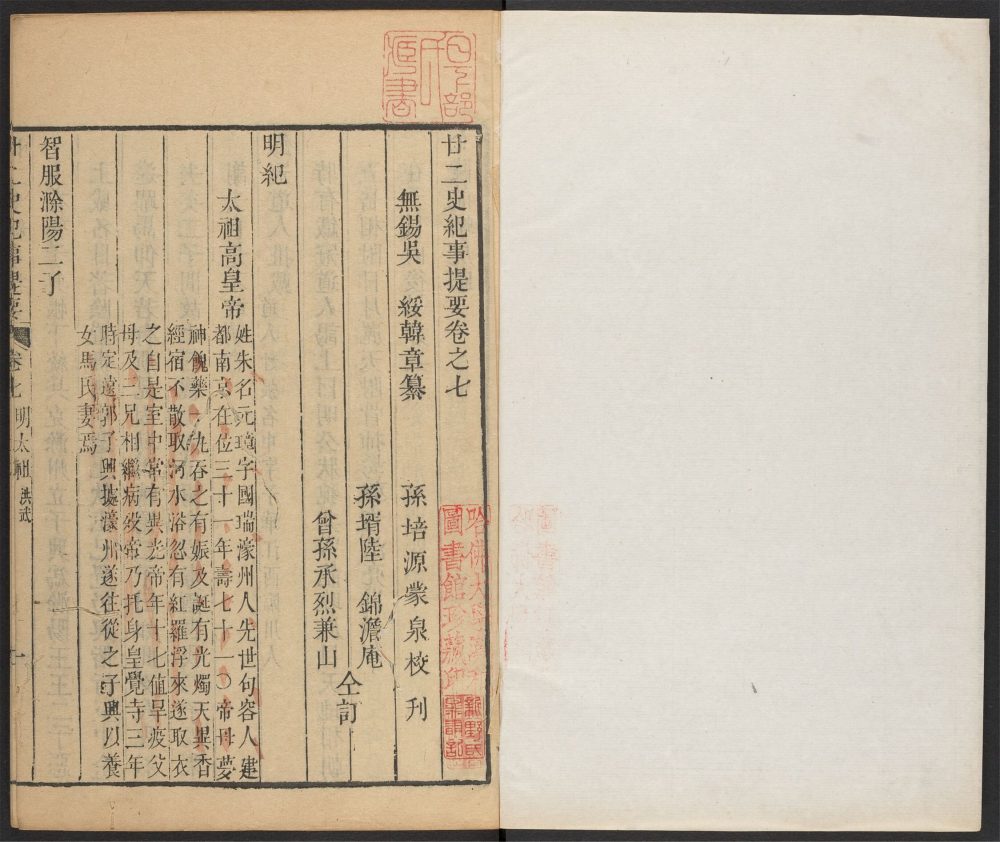 廿二史紀事提要卷之七
無錫吳　綏韓章纂　孫培源蒙泉校刊
孫壻陸　錦澹庵
曾孫承烈兼山　仝訂
明紀
太祖高皇帝
姓朱名元璋字國瑞濠州人先世句容人建
都南京在位三十一年壽七十一〇帝母夢
神餽藥一丸吞之有娠及誕有光燭天異香
經宿不散取河水浴忽有紅羅浮來遂取衣
之自是室中常有異光帝年十七值旱疫父
母及二兄相繼病歿帝乃托身皇覺寺三年
時定遠郭子興據濠州遂往從之子興以養
女馬氏妻焉
智服滁陽二子
廿二史紀事提要　卷七　明太祖　洪武　一
哈佛大學
圖書館珍藏印